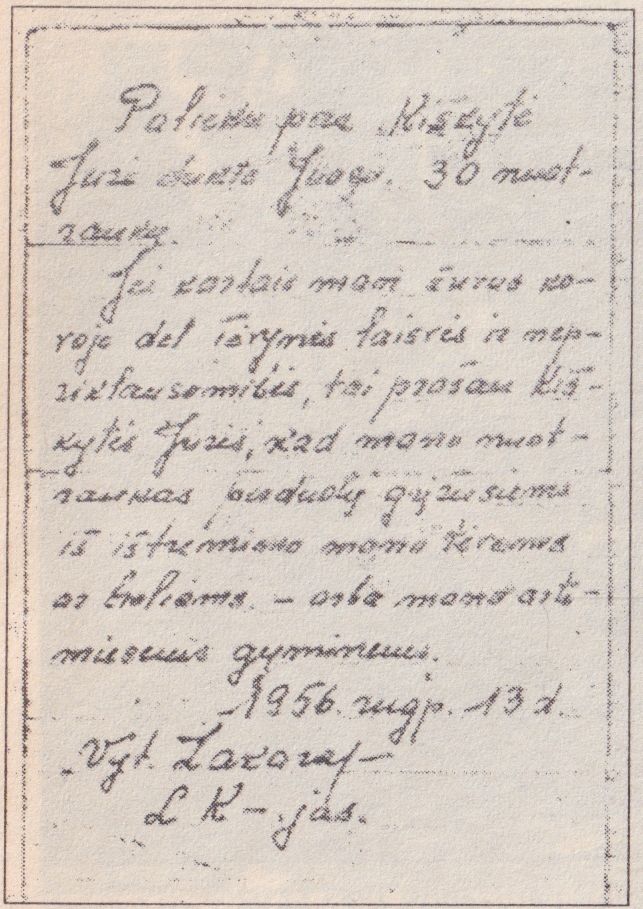 Palieku pas Kiškytė
Juzė dukte Juozo. 30 nuot-
raukų.
Jei kartais man žuvus ko-
voje del tėvynės laisvės ir nep-
riklausomibės, tai prošau Kiš-
kytės Juzės, kad mano nuot-
raukas perduotų gyžusiems
iš ištremimo mano tėvams
ar broliams. – arba mano arti-
miesiems gyminems.
1956 rugp. 13 d.
Vyt.
L K – jas.